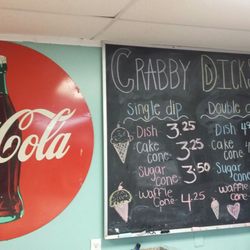 CRABBY DICK'S
Coca-Cola
Single dip
Double
Dish 3.25
Cake cone 3.25
Sugar cone 3.50
Waffle Cone 4.25
Dish
Cake cone
Sugar cone
Waffle cone